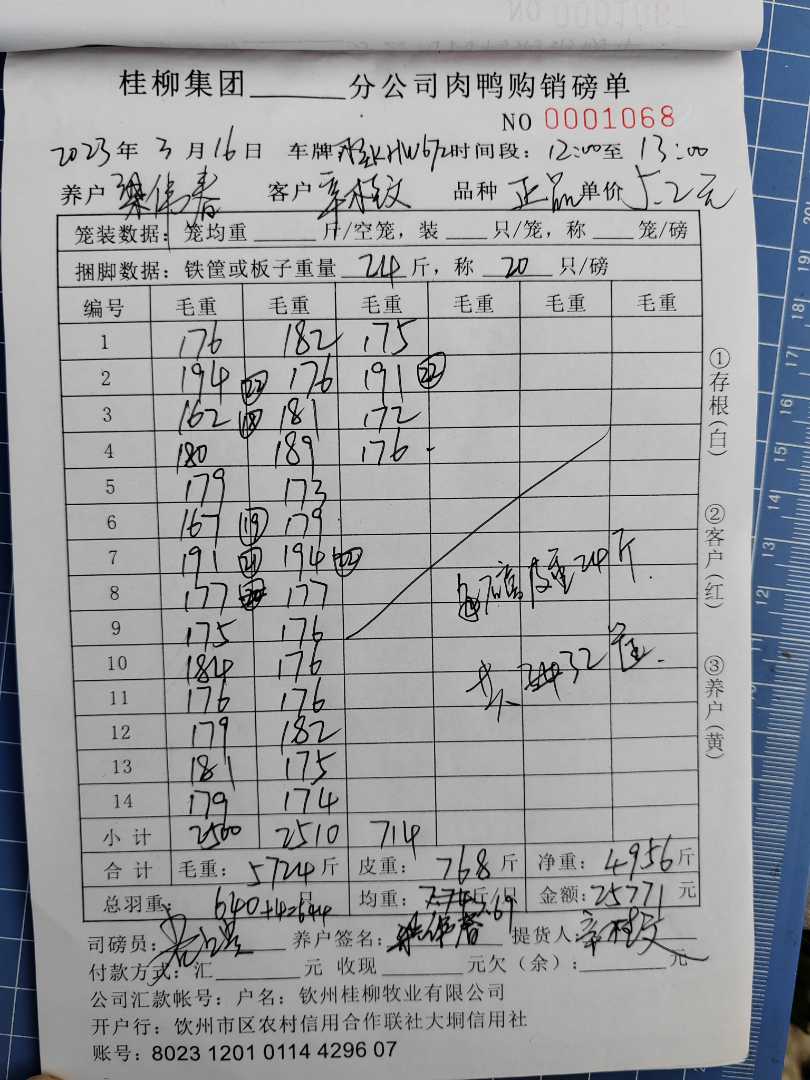 桂柳集团______分公司肉鸭购销磅单
NO 0001068
2023年3月16日 车牌 HW672 时间段:12:00至13:00
养户 梁伟春 客户 辛桂文 品种 正品 单价 5.2元
笼装数据:笼均重 ____ 斤/空笼,装 ___ 只/笼,称 ___ 笼/磅
捆脚数据:铁筐或板子重量 24 斤,称 20 只/磅
编号 毛重 毛重 毛重 毛重 毛重 毛重
1 176 182 175
2 194 ㉒ 176 191 ㉒
3 162 ⑱ 181 172
4 180 189 176
5 179 173
6 167 ⑲ 179
7 191 ㉑ 194 ㉒
8 177 177 每磅皮重24斤.
9 175 176
10 184 176 共 32筐.
11 176 176
12 179 182
13 181 175
14 179 174
小计 2500 2510 714
合计 毛重: 5724斤 皮重: 768斤 净重: 4956斤
总羽重: 640+4=644 只 均重: 7.69 斤/只 金额:25771元
司磅员: 养户签名: 梁伟春 提货人: 辛桂文
付款方式:汇______元 收现______元欠(余):______元
公司汇款帐号:户名:钦州桂柳牧业有限公司
开户行:钦州市区农村信用合作联社大垌信用社
账号:8023 1201 0114 4296 07
①存根(白)
②客户(红)
③养户(黄)